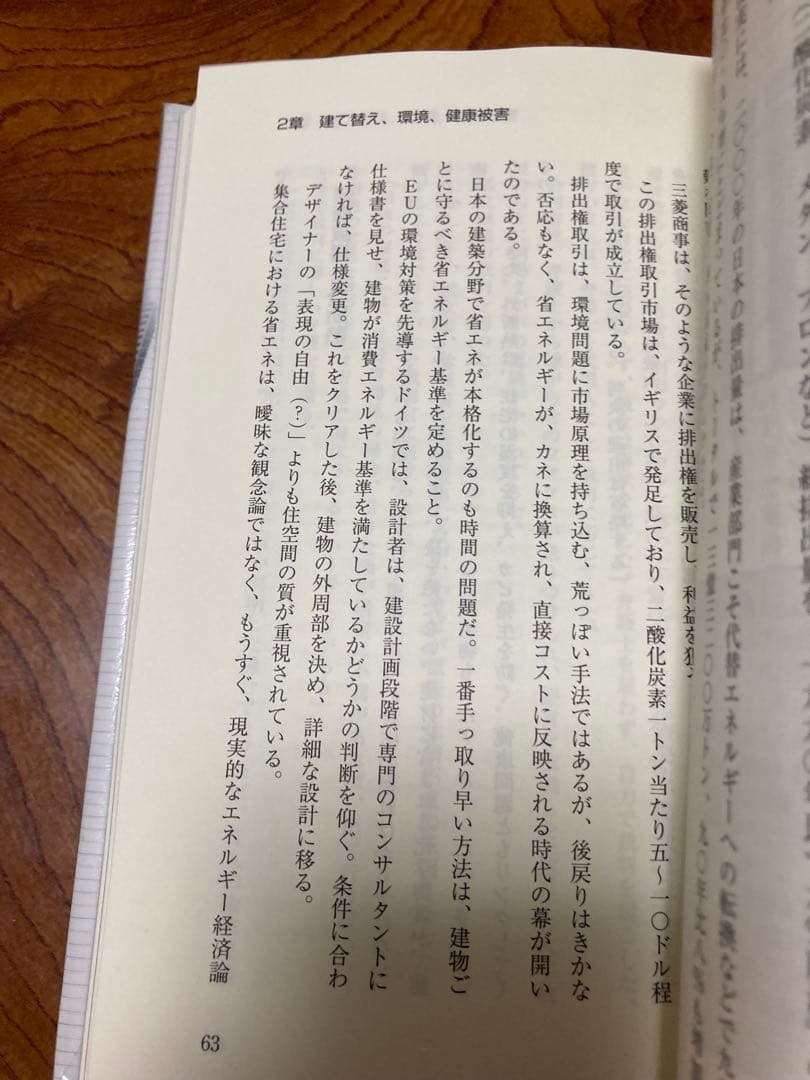 2章 建て替え、環境、健康被害
三菱商事は、そのような企業に排出権を販売し、利益を狙
この排出権取引市場は、イギリスで発足しており、二酸化炭素一トン当たり五〜一〇ドル程
度で取引が成立している。
排出権取引は、環境問題に市場原理を持ち込む、荒っぽい手法ではあるが、後戻りはきかな
い。否応もなく、省エネルギーが、カネに換算され、直接コストに反映される時代の幕が開い
たのである。
日本の建築分野で省エネが本格化するのも時間の問題だ。一番手っ取り早い方法は、建物ご
とに守るべき省エネルギー基準を定めること。
EUの環境対策を先導するドイツでは、設計者は、建設計画段階で専門のコンサルタントに
仕様書を見せ、建物が消費エネルギー基準を満たしているかどうかの判断を仰ぐ。条件に合わ
なければ、仕様変更。これをクリアした後、建物の外周部を決め、詳細な設計に移る。
デザイナーの「表現の自由（？）」よりも住空間の質が重視されている。
集合住宅における省エネは、曖昧な観念論ではなく、もうすぐ、現実的なエネルギー経済論
63